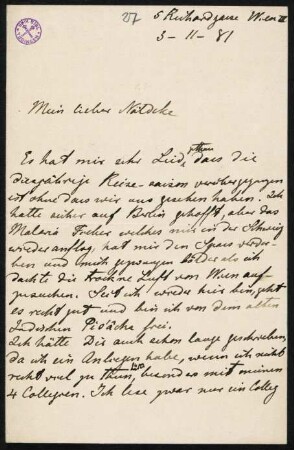 27
5 Reichardgasse Wien III
3-11-81
Mein lieber Nöldeke
Es hat mir sehr Leid gethan dass die
diesjährige Reise-saison vorübergegangen
ist ohne dass wir uns gesehen haben. Ich
hatte sicher auf Berlin gehofft, aber das
Malaria Fieber welches mich in der Schweiz
wieder anflog, hat mir den Spass verdor-
ben und mich gezwungen früher als ich
dachte die trockne Luft von Wien auf-
zusuchen. Seit ich wieder hier bin, geht
es recht gut und bin ich von dem alten
Indischen frei.
Ich hätte Dir auch schon lange geschrieben,
da ich ein Anliegen habe, wenn ich nicht
recht viel zu thun hätte, besonders mit meinen
4 Collegien. Ich lese zwar nur ein Colleg